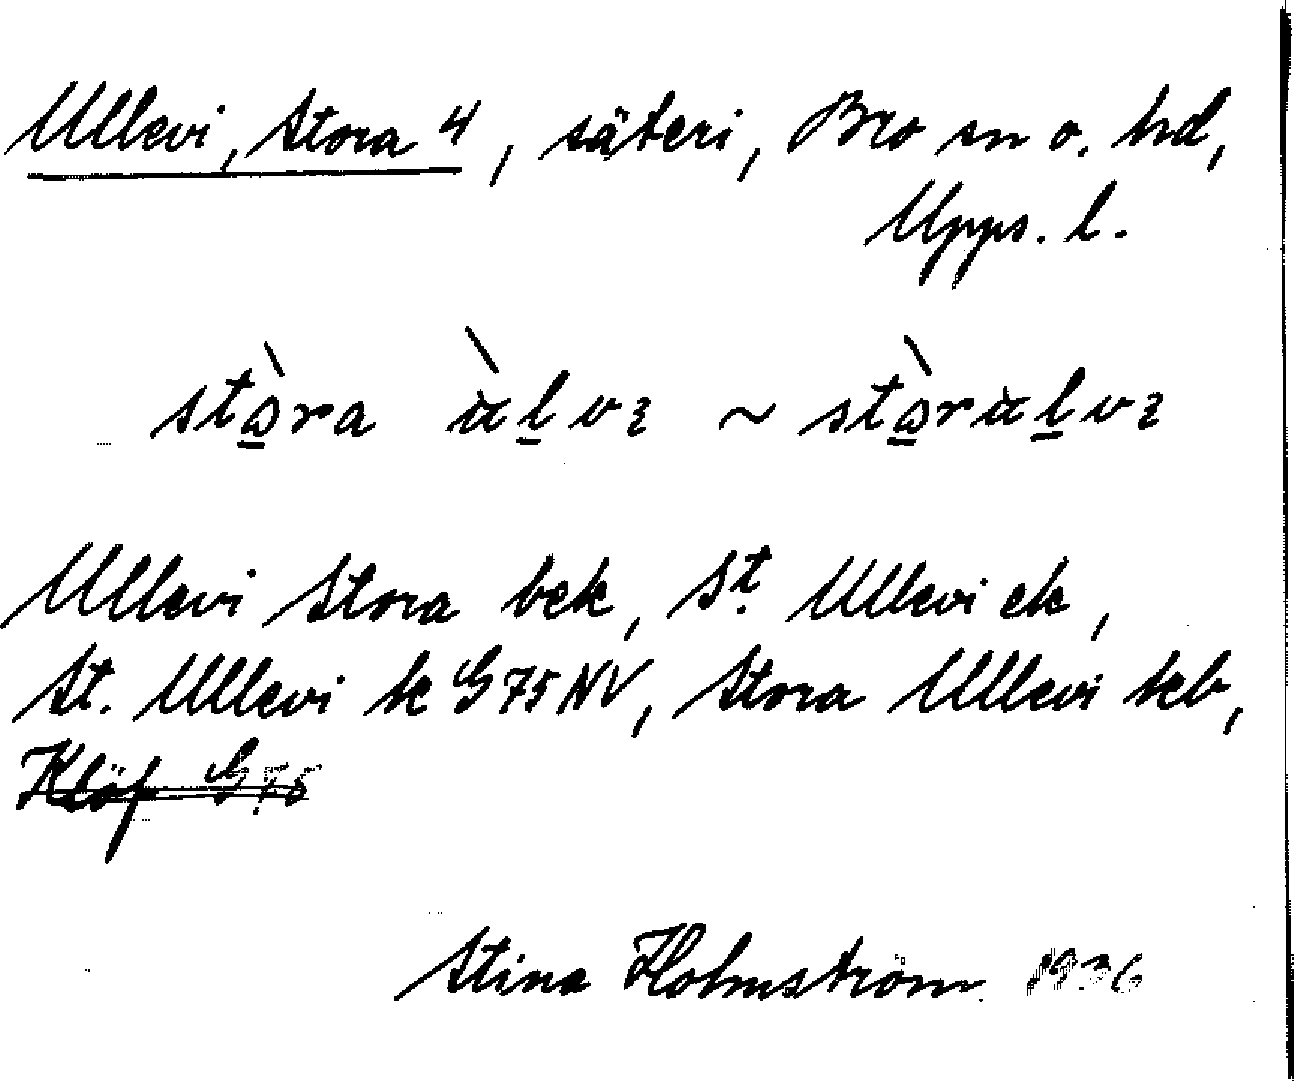 Ullevi, Stora 4, säteri, Bro sn o. hd,
Upps. l.
stɷ̀ra ùlvɩ ~ stɷ̀rulvɩ
Ullevi Stora bek, St. Ullevi ek,
St. Ullevi te G 75 NV, Stora Ullevi teb,
Klöf G 75
Stina Holmström 1936